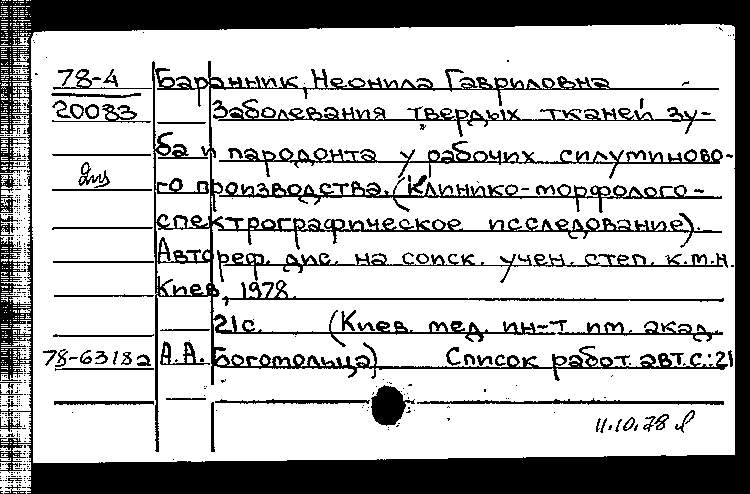 78-4 Баранник, Неонила Гавриловна
20083 Заболевания твердых тканей зу-
ба и пародонта у рабочих силуминово-
го производства. (Клинико-морфолого-
спектрографическое исследование).
Автореф. дис. на соиск. учен. степ. к.м.н.
Киев, 1978.
21с. (Киев. мед. ин-т им. акад.
78-6318а А.А. Богомольца) Список работ авт.с.:21
11.10.78